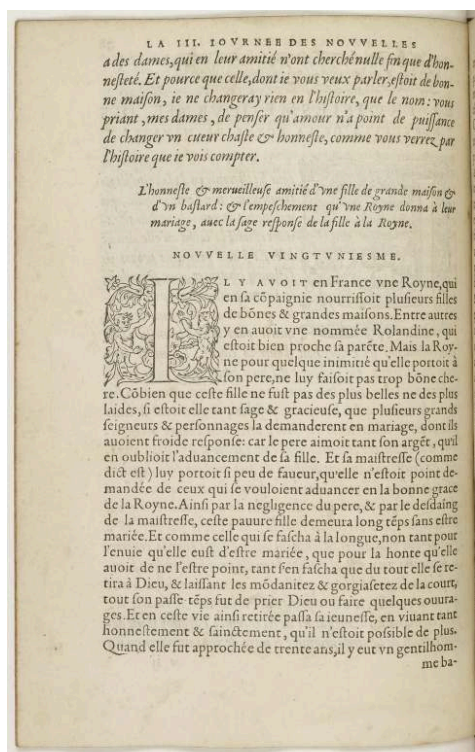 LA III. IOVRNEE DES NOVVELLES
a des dames, qui en leur amitié n'ont cherché nulle fin que d'hon-
nesteté. Et pource que celle, dont ie vous veux parler, estoit de bon-
ne maison, ie ne changeray rien en l'histoire, que le nom: vous
priant, mes dames, de penser qu'amour n'a point de puissance
de changer vn cueur chaste & honneste, comme vous verrez par
l'histoire que ie vois compter.
L'honneste & merueilleuse amitié d'vne fille de grande maison &
d'vn bastard: & l'empeschement qu'vne Royne donna à leur
mariage, auec la sage responſe de la fille à la Royne.
NOVVELLE VINGTVNIESME.
IL Y AVOIT en France vne Royne, qui
en ſa cõpaignie nourriſſoit pluſieurs filles
de bônes & grandes maiſons. Entre autres
y en auoit vne nommée Rolandine, qui
eſtoit bien proche ſa parẽte. Mais la Roy-
ne pour quelque inimitié qu'elle portoit à
ſon pere, ne luy faiſoit pas trop bône che-
re. Cõbien que ceſte fille ne fuſt pas des plus belles ne des plus
laides, ſi eſtoit elle tant ſage & gracieuſe, que pluſieurs grands
ſeigneurs & perſonnages la demanderent en mariage, dont ils
auoient froide reſponſe: car le pere aimoit tant ſon argẽt, qu'il
en oublioit l'aduancement de ſa fille. Et ſa maiſtreſſe (comme
dict eſt) luy portoit ſi peu de faueur, qu'elle n'eſtoit point de-
mandée de ceux qui ſe vouloient aduancer en la bonne grace
de la Royne. Ainſi par la negligence du pere, & par le deſdaing
de la maiſtreſſe, ceſte pauure fille demeura long tẽps ſans eſtre
mariée. Et comme celle qui ſe faſcha à la longue, non tant pour
l'enuie qu'elle euſt d'eſtre mariée, que pour la honte qu'elle
auoit de ne l'eſtre point, tant ſ'en faſcha que du tout elle ſe re-
tira à Dieu, & laiſſant les mõdanitez & gorgiaſetez de la court,
tout ſon paſſe tẽps fut de prier Dieu ou faire quelques ouura-
ges. Et en ceſte vie ainſi retirée paſſa ſa ieuneſſe, en viuant tant
honneſtement & ſainctement, qu'il n'eſtoit poſſible de plus.
Quand elle fut approchée de trente ans, il y eut vn gentilhom-
me ba-